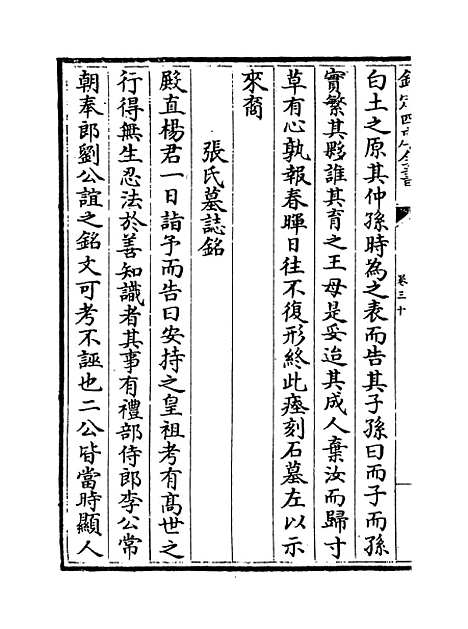 欽定四庫全書
卷三十
白土之原其仲孫時為之表而告其子孫曰而子而孫
實繁其夥誰其育之王母是妥迨其成人棄汝而歸寸
草有心孰報春暉日往不復形終此瘞刻石墓左以示
來裔
張氏墓誌銘
殿直楊君一日詣予而告曰安持之皇祖考有高世之
行得無生忍法於善知識者其事有禮部侍郎李公常
朝奉郎劉公誼之銘文可考不誣也二公皆當時顯人